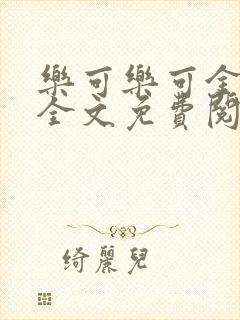 樂可樂可全
全文免費閱
綺麗兒